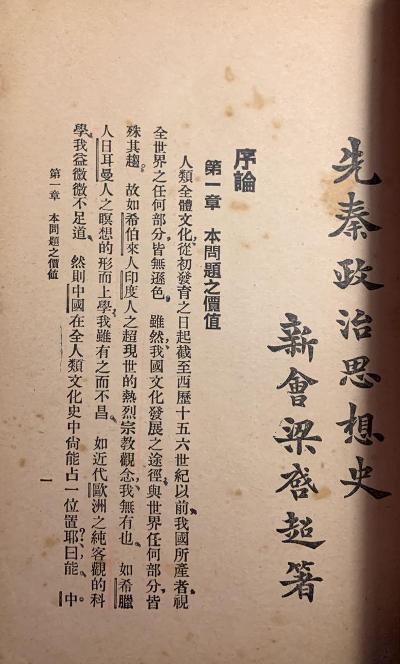 先秦政治思想史
新會梁啓超著
序論
第一章 本問題之價值
人類全體文化,從初發育之日起截至西歷十五六世紀以前,我國所產者,視
全世界之任何部分,皆無遜色。雖然,我國文化發展之途徑,與世界任何部分,皆
殊其趨。故如希伯來人印度人之超現世的熱烈宗教觀念,我無有也。如希臘
人日耳曼人之瞑想的形而上學,我雖有之而不昌。如近代歐洲之純客觀的科
學,我益微微不足道。然則中國在全人類文化史中尙能占一位置耶?曰能。中
第一章 本問題之價值
一